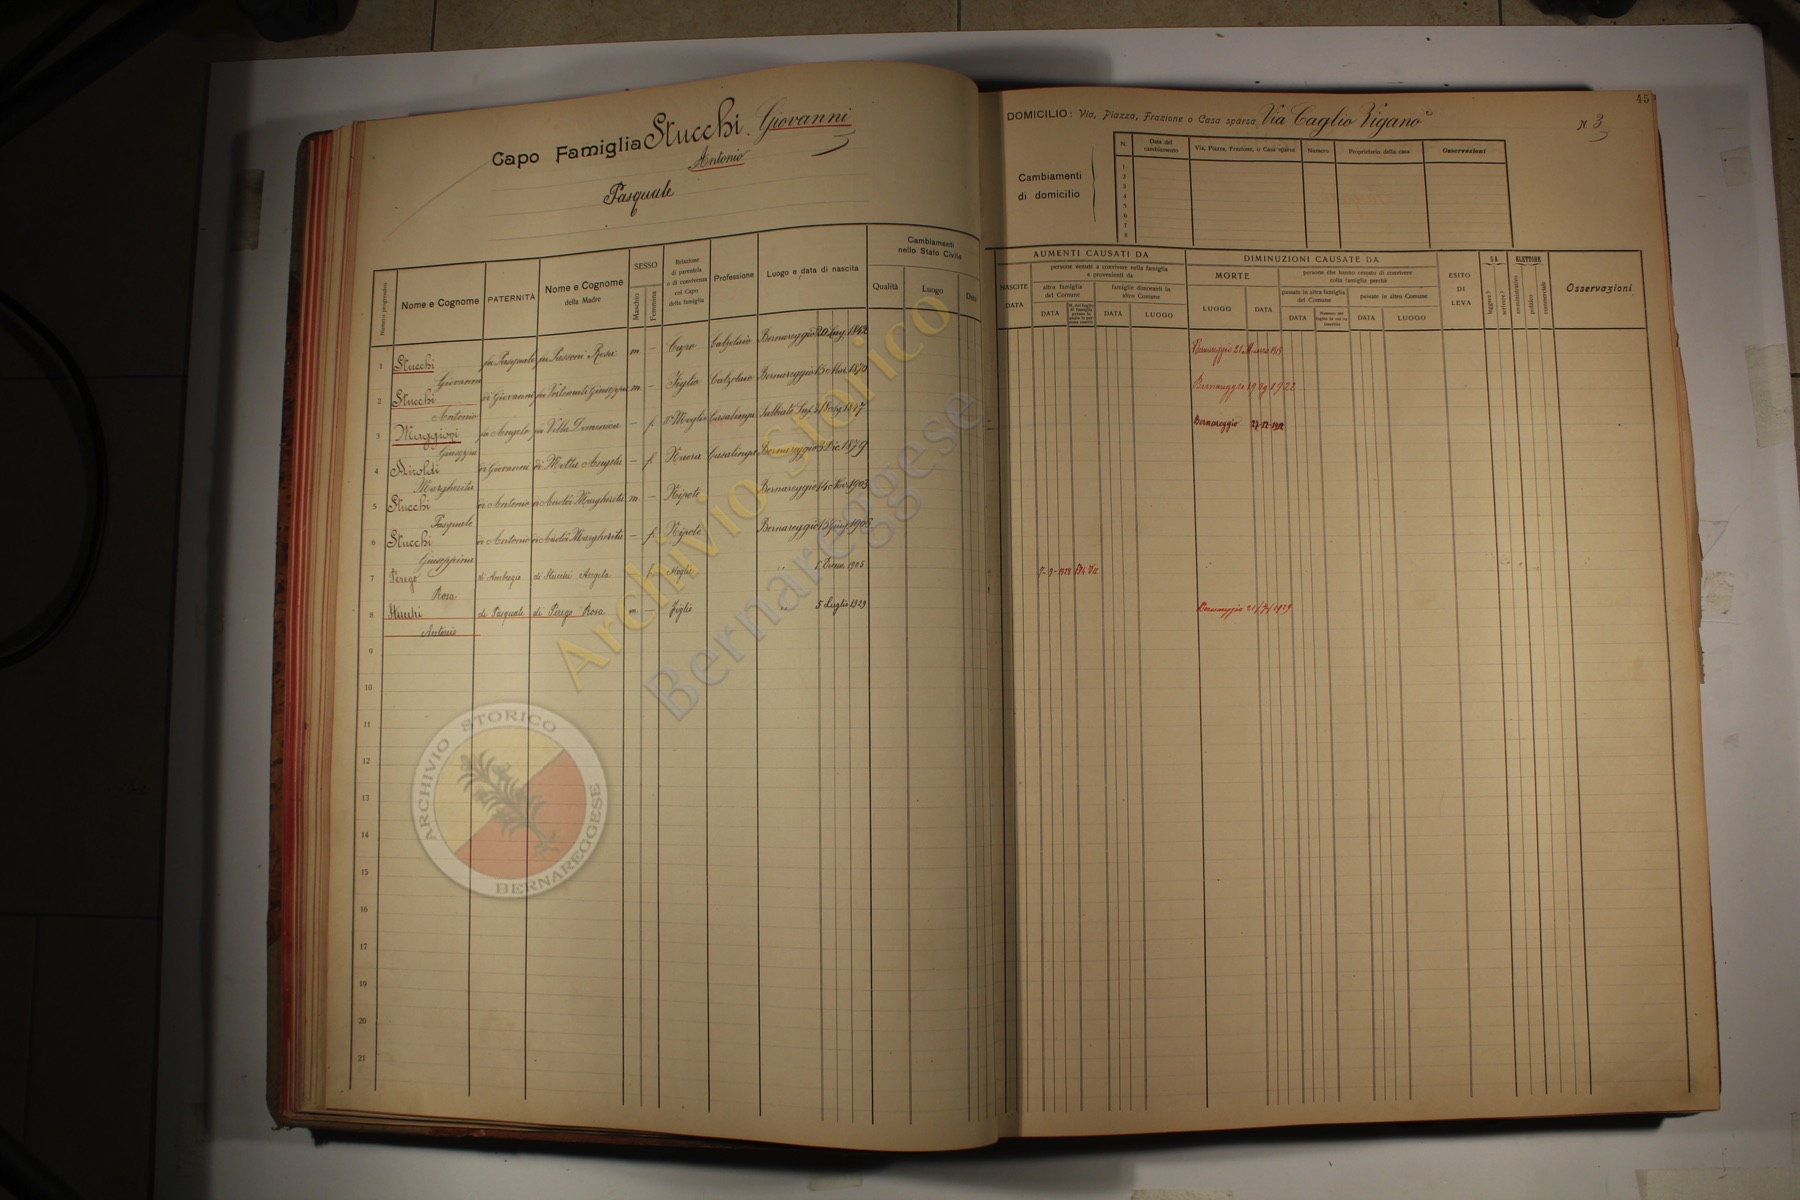 45
Capo Famiglia Stucchi Giovanni
Antonio
Pasquale
DOMICILIO: Via, Piazza, Frazione o Casa sparsa Via Caglio Viganò
N. 3
Cambiamenti
di domicilio
N.
Data del
cambiamento
Via, Piazza, Frazione, o Casa sparsa
Numero
Proprietario della casa
Osservazioni
1
2
3
4
5
6
7
8
Numero progressivo
Nome e Cognome
PATERNITÀ
Nome e Cognome
della Madre
SESSO
Maschio
Femmina
Relazione
di parentela
o di convivenza
col Capo
della famiglia
Professione
Luogo e data di nascita
Cambiamenti
nello Stato Civile
Qualità
Luogo
Data
AUMENTI CAUSATI DA
NASCITE
DATA
persone venute a convivere nella famiglia
e provenienti da
altra famiglia
del Comune
DATA
famiglie dimoranti in
altro Comune
DATA
LUOGO
DIMINUZIONI CAUSATE DA
MORTE
LUOGO
DATA
persone che hanno cessato di convivere
colla famiglia perchè
passate in altra famiglia
del Comune
DATA
passate in altro Comune
DATA
LUOGO
ESITO
DI
LEVA
SA
leggere?
scrivere?
ELETTORE
amministrativo
politico
commerciale
Osservazioni
1 Stucchi Giovanni fu Pasquale fu Passoni Rosa m — Capo Calzolaio Bernareggio 20 Lug. 1842 Bernareggio 21 Marzo
2 Stucchi Antonio di Giovanni m — Figlio Calzolaio Bernareggio 15 Mar. 1870 Bernareggio 1922
3 Maggioni Giuseppa fu Angelo fu Villa Domenica — f. Moglie Casalinga Bernareggio 27-12-
4 Airoldi Margherita di Giovanni di Motta Angela — f. Nuora Casalinga Bernareggio 3 Dic. 1879
5 Stucchi Pasquale di Antonio di Margherita m — Nipote Bernareggio 1903
6 Stucchi Giuseppina di Antonio di Margherita — f. Nipote Bernareggio 15
7 Perego Rosa di Ambrogio di Stucchi Angela f. Moglie " 1905 8-9-1928
8 Stucchi Antonio di Pasquale di Perego Rosa m — Figlio " 5 Luglio 1929 Bernareggio 1929
9
10
11
12
13
14
15
16
17
18
19
20
21
Archivio Storico
Bernareggese
ARCHIVIO STORICO
BERNAREGGESE